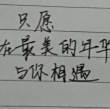 只愿
在最美的年华
与你相遇